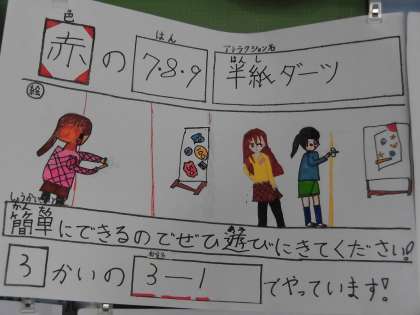 色 はん アトラクション名
赤の 7・8・9 半紙ダーツ
はんし
絵
しょうかい
かんたん あそ
簡単にできるのでぜひ遊びにきてください!
3かいの3―1でやっています!